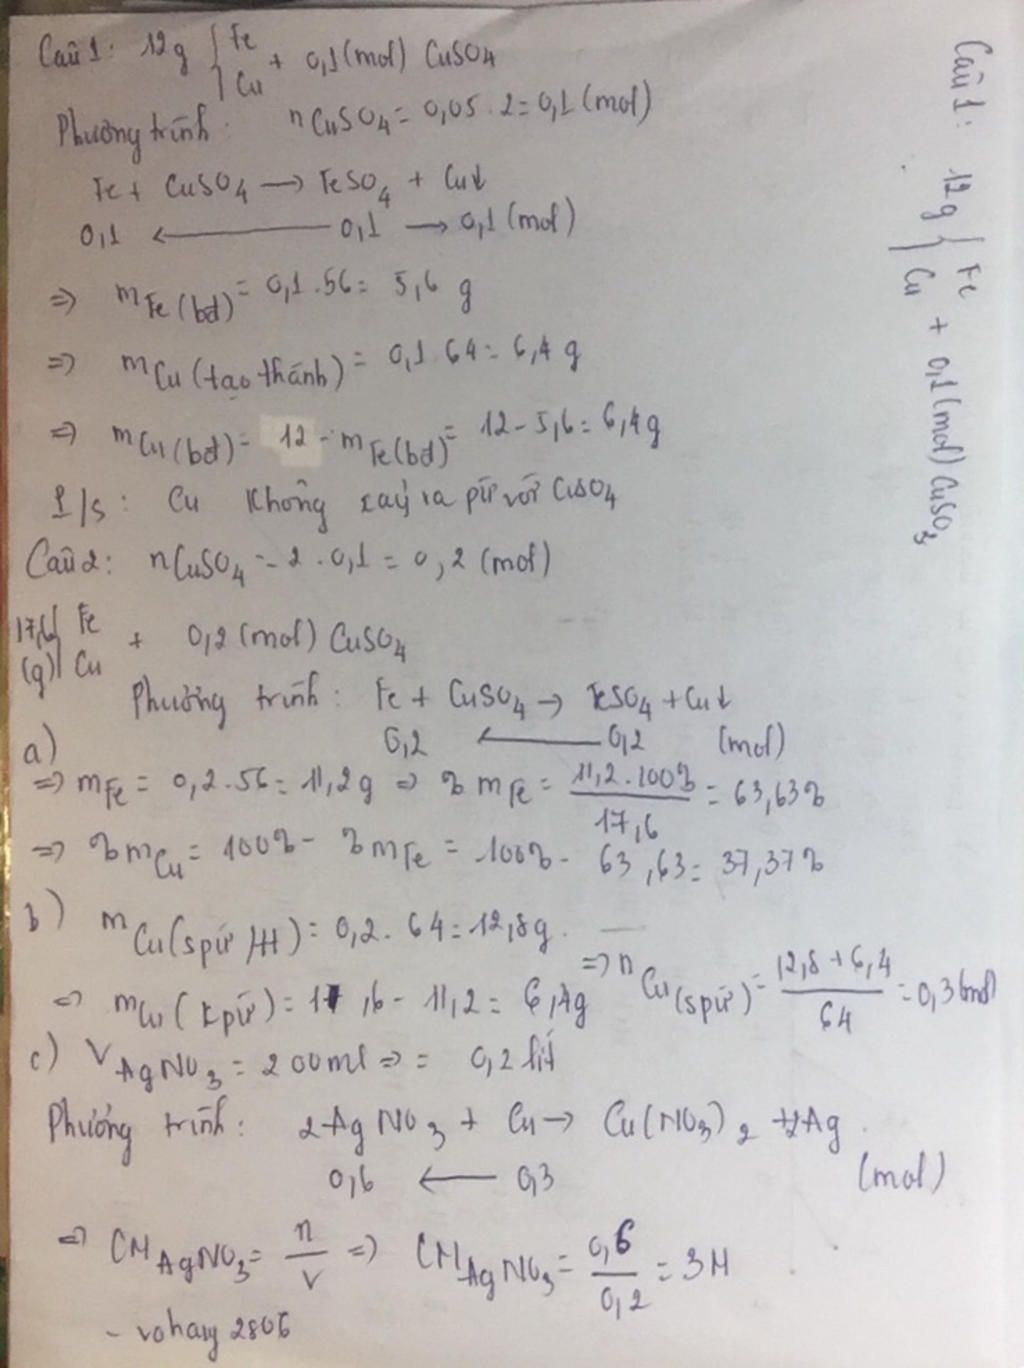 Câu 1: 12g { Fe Cu + 0,1 (mol) CuSO4
Phương trình: nCuSO4 = 0,05 . 2 = 0,1 (mol)
Fe + CuSO4 → FeSO4 + Cu↓
0,1 ← 0,1 → 0,1 (mol)
=> mFe(bđ) = 0,1 . 56 = 5,6 g
=> mCu(tạo thành) = 0,1 . 64 = 6,4 g
=> mCu(bđ) = 12 - mFe(bđ) = 12 - 5,6 = 6,4g
P/s: Cu không xảy ra pứ với CuSO4
Câu 2: nCuSO4 = 2 . 0,1 = 0,2 (mol)
17,6 (g) { Fe Cu + 0,2 (mol) CuSO4
Phương trình: Fe + CuSO4 → FeSO4 + Cu↓
0,2 ← 0,2 (mol)
a)
=> mFe = 0,2 . 56 = 11,2g => % mFe = 11,2 . 100% / 17,6 = 63,63%
=> % mCu = 100% - % mFe = 100% - 63,63 = 37,37%
b) mCu(spứ) = 0,2 . 64 = 12,8g.
=> mCu(kpứ) = 17,6 - 11,2 = 6,4g => nCu(spứ) = 12,8 + 6,4 / 64 = 0,3 (mol)
c) VAgNO3 = 200ml => = 0,2 lít
Phương trình: 2AgNO3 + Cu → Cu(NO3)2 + 2Ag.
0,6 ← 0,3 (mol)
=> CM AgNO3 = n / V => CM AgNO3 = 0,6 / 0,2 = 3M
- vohany2806
Câu 1: 12g { Fe Cu + 0,1 (mol) CuSO3